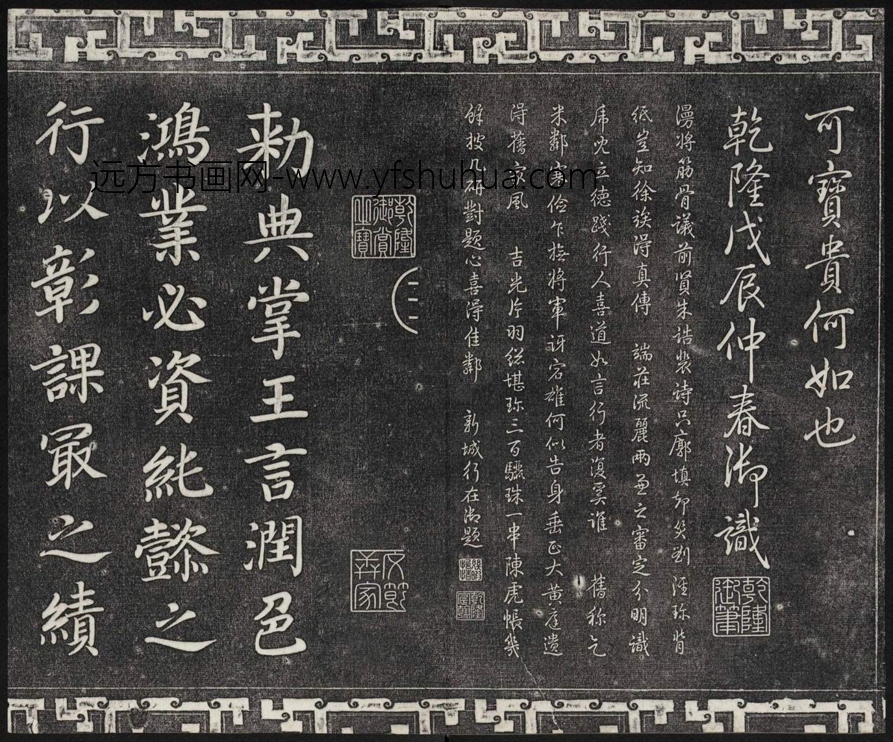 可寶貴何如也
乾隆戊辰仲春御識
漫將筋骨議前賢朱誥裴詩只廓填却笑劉涇珎背
紙豈知徐誥得真傳 端莊流麗兩兼之審定分明識
席 立德踐行人喜道如言行者復奚誰 舊稱乞
米鄰寒儉乍接將軍訝宕雄何似告身垂正大黃庭遺
得舊家風 吉光片羽總堪珎三百驪珠一串陳虎帳幾
餘披几研對題心喜得佳鄰 新城行在御題
乾隆御筆
乾隆御賞之寶
敕典掌王言潤色
鴻業必資純懿之
行以彰課冣之績
远方书画网-www.yfshuhua.com